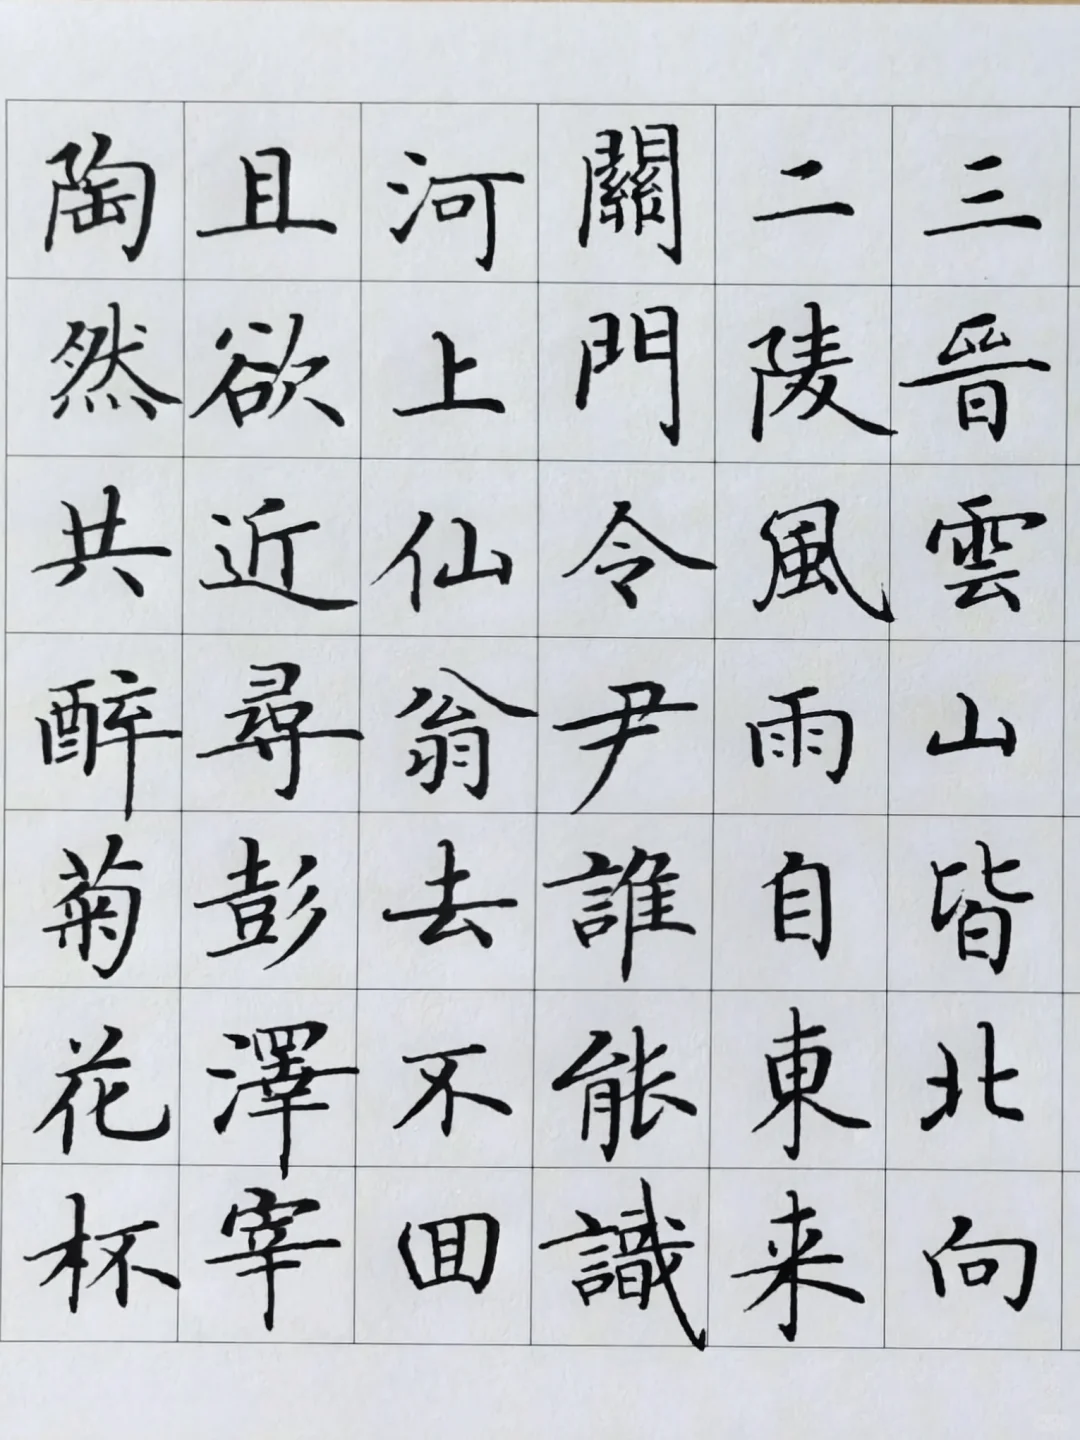 三晉雲山皆北向
二陵風雨自東来
關門令尹誰能識
河上仙翁去不回
且欲近尋彭澤宰
陶然共醉菊花杯